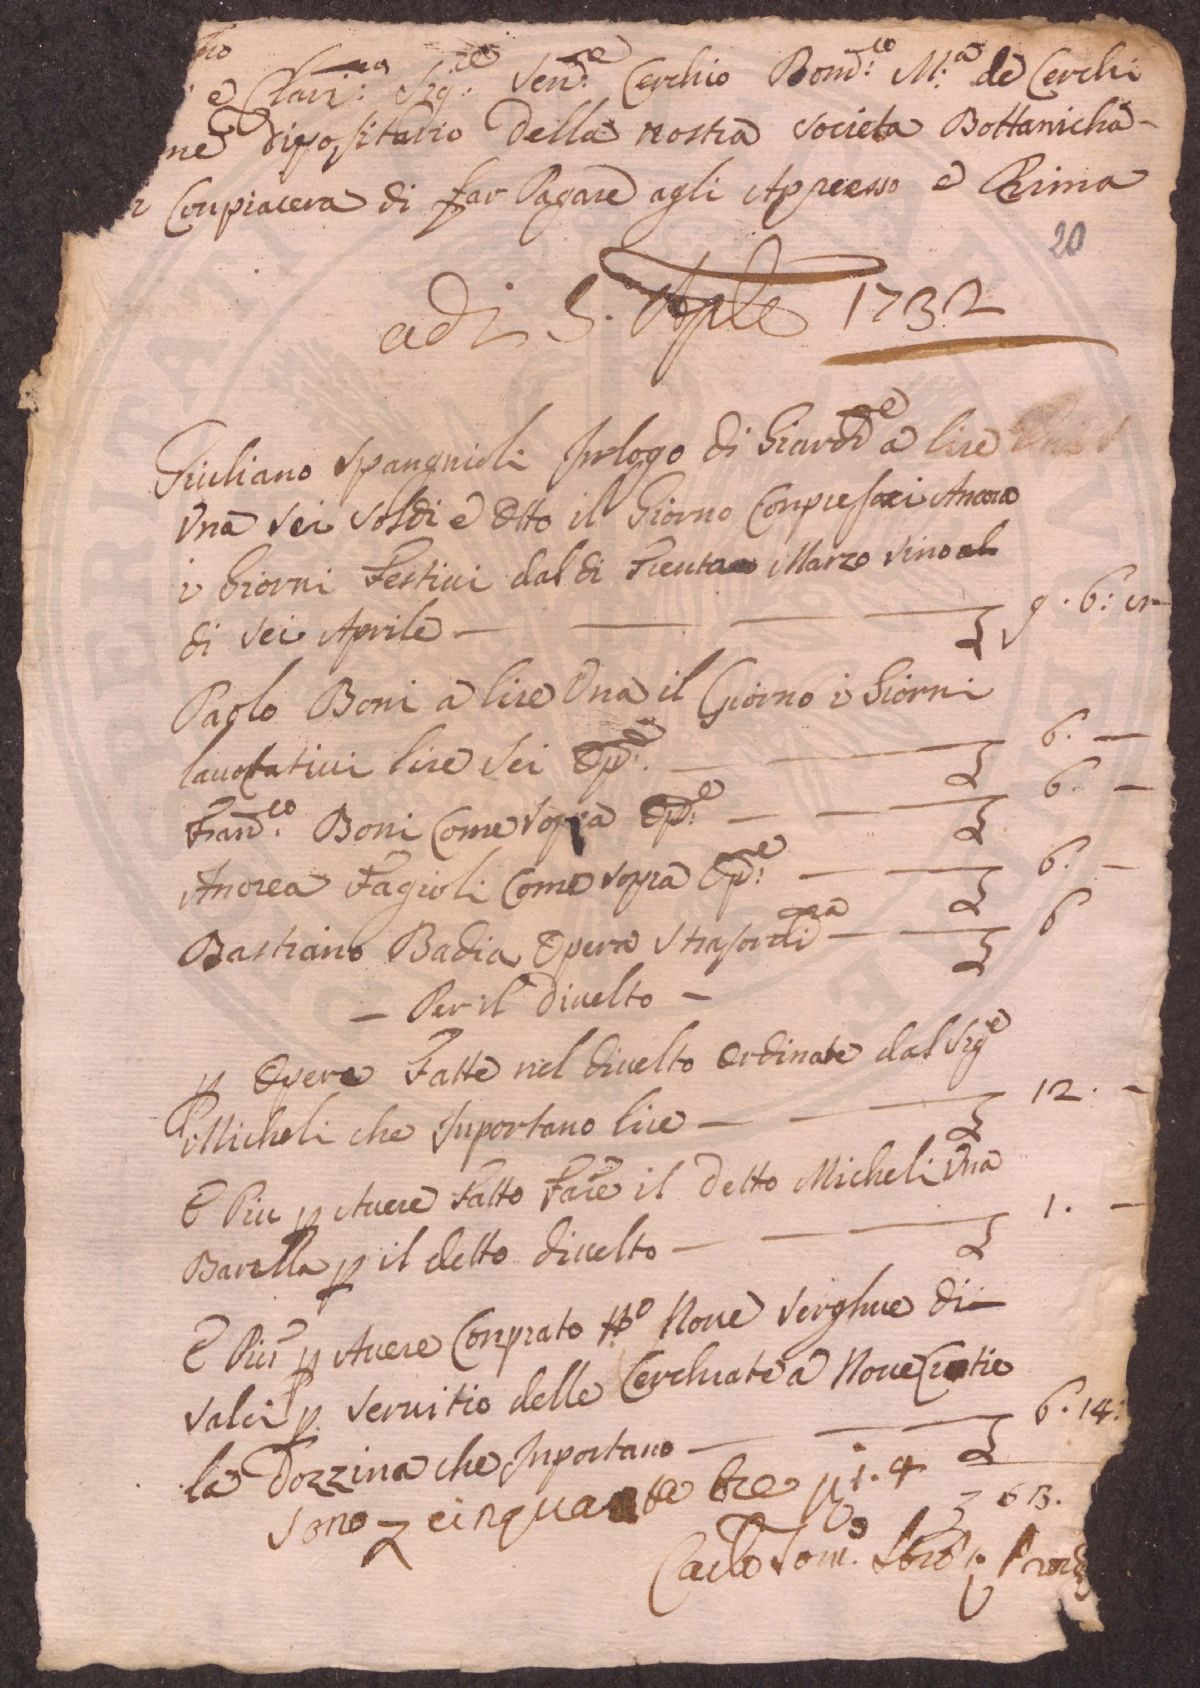 e Clari:mo Sig:re Sen:re Cerchio Bond:co M:a de Cerchi
me dipositario della nostra societa Bottanicha
Conpiacera di far Pagare agli Apresso e Prima
20
adi 5. Aple 1732
Giuliano Spangnioli Inlogo di Giard:e a lire
Una sei soldi e Otto il Giorno Conpresoci Ancora
i Giorni Festiui dal di Trenta Marzo Sino al
di sei Aprile — 9. 6:
Paolo Boni a lire Una il Giorno i Giorni
lauoratiui lire sei Op:e — 6. —
Fran:co Boni Come sopra Op:e — 6. —
Andrea Fagioli Come sopra Op:ne — 6. —
Bastiano Badia Opera Strasordi:ra — 6
— Per il diuelto —
p Opere Fatte nel diuelto Ordinate dal Sig:e
Micheli che Inportano lire — 12. —
E Piu p Auere Fatto Fare il detto Micheli Una
Barella p il detto diuelto — 1. —
E Piu p Auere Conprato No Noue Verghue di
Salci p seruitio delle Cerchiate a Noue Cratie
la Dozzina che Inportano — 6. 14:
Sono cinquanta tre 1. 4
Carlo Tom:o